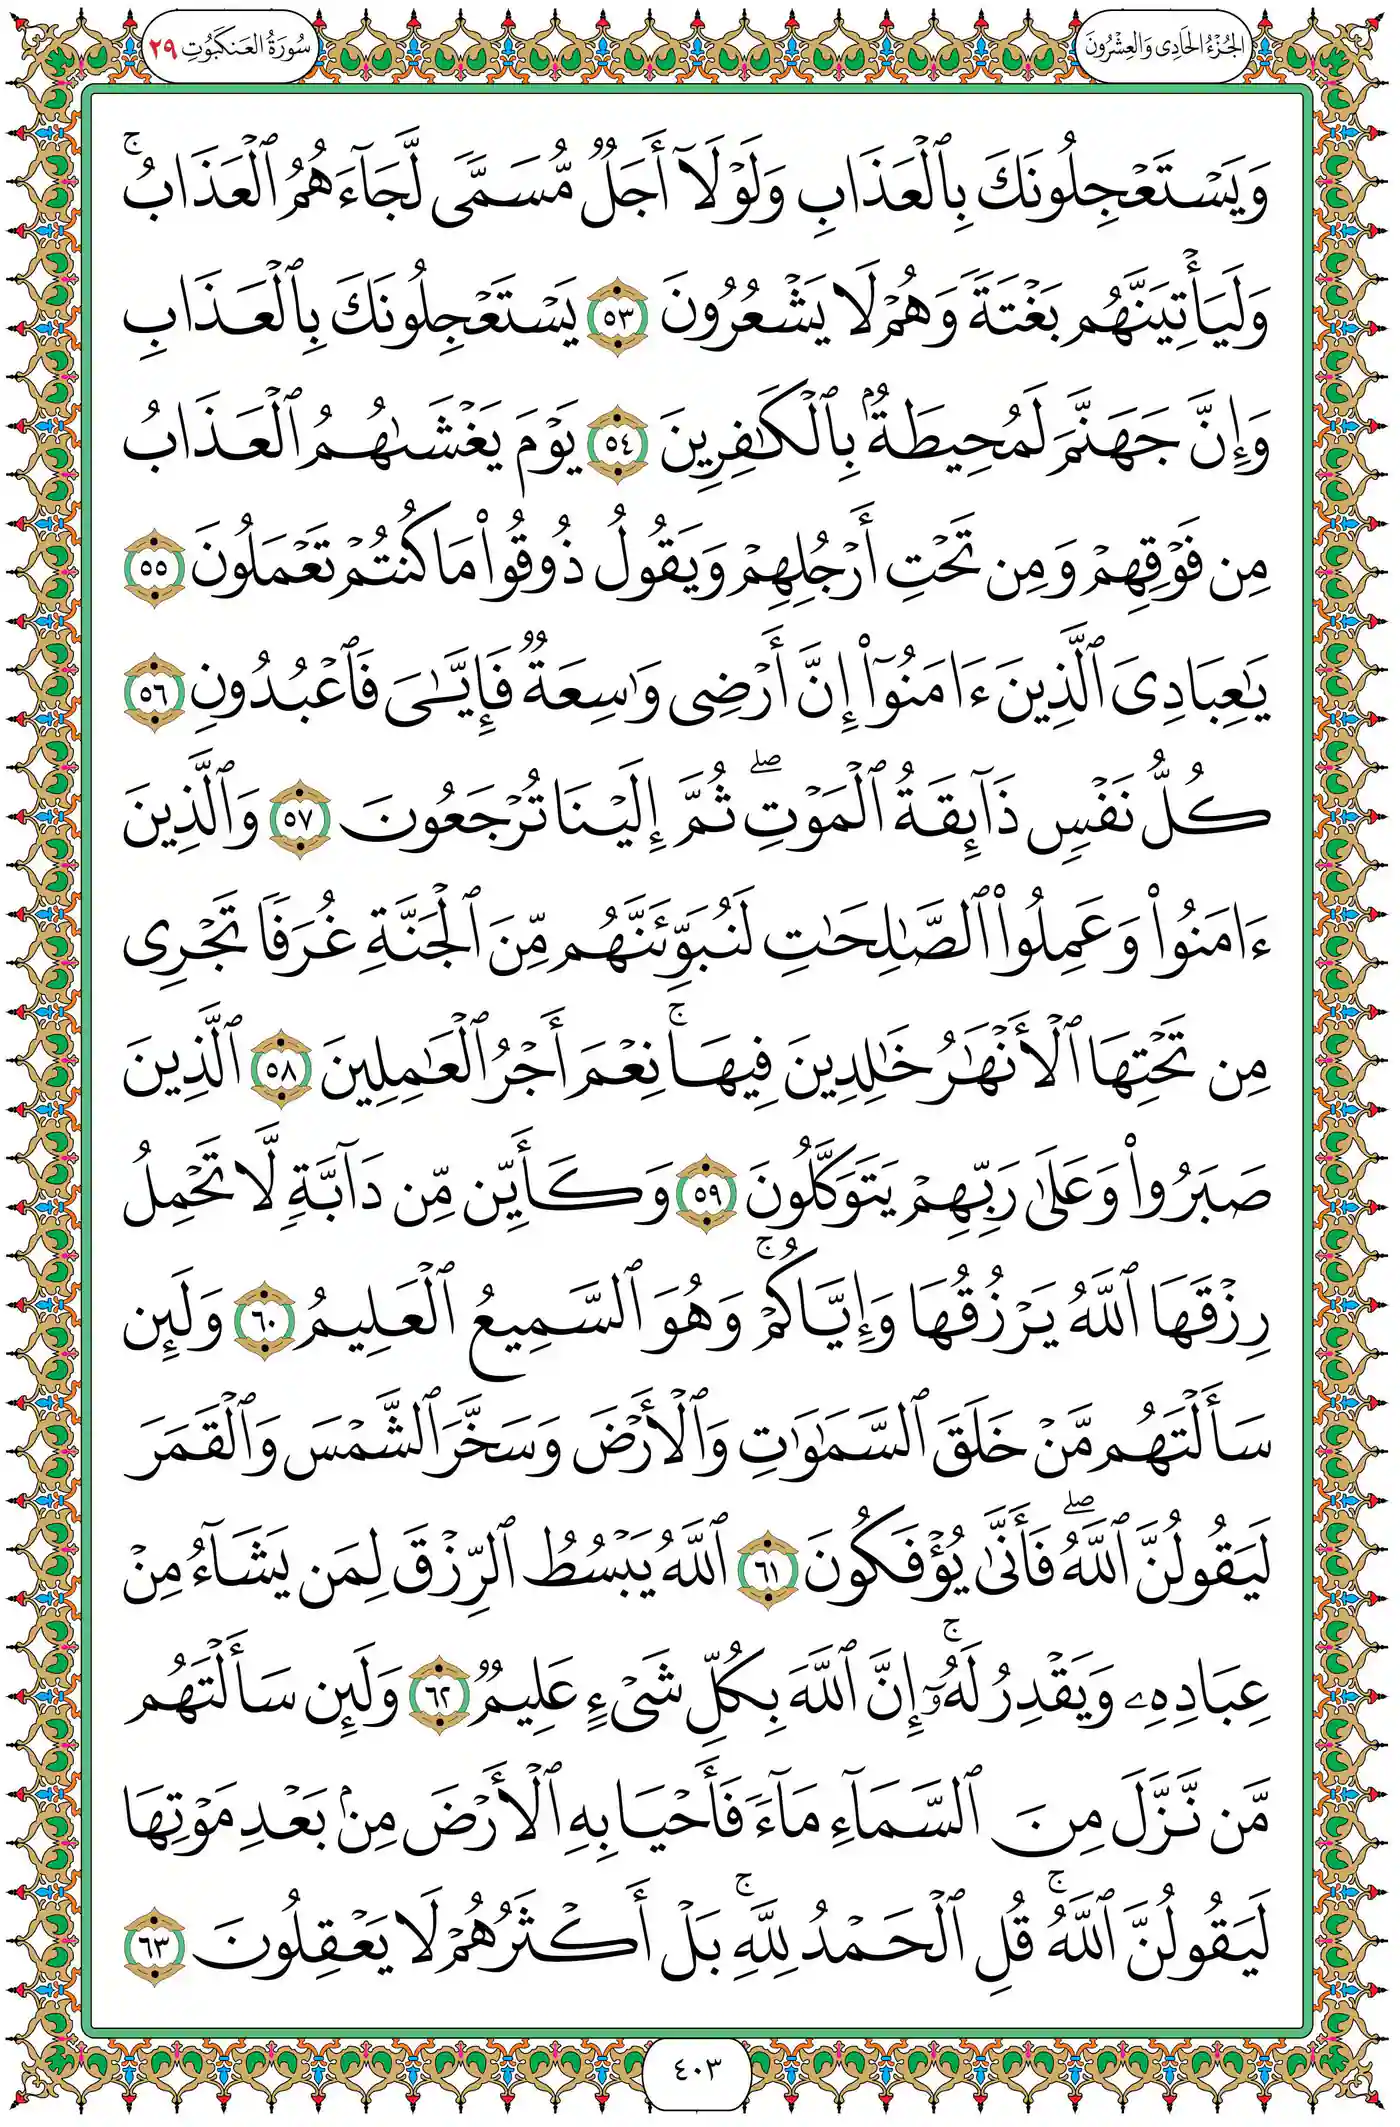 الجُزْءُ الحَادِى وَالعِشْرُونَ
سُورَةُ العَنكَبُوتِ ٢٩
وَيَسْتَعْجِلُونَكَ بِٱلْعَذَابِ وَلَوْلَآ أَجَلٌ مُّسَمًّى لَّجَآءَهُمُ ٱلْعَذَابُۚ
وَلَيَأْتِيَنَّهُم بَغْتَةً وَهُمْ لَا يَشْعُرُونَ ٥٣ يَسْتَعْجِلُونَكَ بِٱلْعَذَابِ
وَإِنَّ جَهَنَّمَ لَمُحِيطَةٌۢ بِٱلْكَٰفِرِينَ ٥٤ يَوْمَ يَغْشَىٰهُمُ ٱلْعَذَابُ
مِن فَوْقِهِمْ وَمِن تَحْتِ أَرْجُلِهِمْ وَيَقُولُ ذُوقُوا۟ مَا كُنتُمْ تَعْمَلُونَ ٥٥
يَٰعِبَادِىَ ٱلَّذِينَ ءَامَنُوٓا۟ إِنَّ أَرْضِى وَٰسِعَةٌ فَإِيَّٰىَ فَٱعْبُدُونِ ٥٦
كُلُّ نَفْسٍ ذَآئِقَةُ ٱلْمَوْتِۖ ثُمَّ إِلَيْنَا تُرْجَعُونَ ٥٧ وَٱلَّذِينَ
ءَامَنُوا۟ وَعَمِلُوا۟ ٱلصَّٰلِحَٰتِ لَنُبَوِّئَنَّهُم مِّنَ ٱلْجَنَّةِ غُرَفًا تَجْرِى
مِن تَحْتِهَا ٱلْأَنْهَٰرُ خَٰلِدِينَ فِيهَاۚ نِعْمَ أَجْرُ ٱلْعَٰمِلِينَ ٥٨ ٱلَّذِينَ
صَبَرُوا۟ وَعَلَىٰ رَبِّهِمْ يَتَوَكَّلُونَ ٥٩ وَكَأَيِّن مِّن دَآبَّةٍ لَّا تَحْمِلُ
رِزْقَهَا ٱللَّهُ يَرْزُقُهَا وَإِيَّاكُمْۚ وَهُوَ ٱلسَّمِيعُ ٱلْعَلِيمُ ٦٠ وَلَئِن
سَأَلْتَهُم مَّنْ خَلَقَ ٱلسَّمَٰوَٰتِ وَٱلْأَرْضَ وَسَخَّرَ ٱلشَّمْسَ وَٱلْقَمَرَ
لَيَقُولُنَّ ٱللَّهُۖ فَأَنَّىٰ يُؤْفَكُونَ ٦١ ٱللَّهُ يَبْسُطُ ٱلرِّزْقَ لِمَن يَشَآءُ مِنْ
عِبَادِهِۦ وَيَقْدِرُ لَهُۥٓۚ إِنَّ ٱللَّهَ بِكُلِّ شَىْءٍ عَلِيمٌ ٦٢ وَلَئِن سَأَلْتَهُم
مَّن نَّزَّلَ مِنَ ٱلسَّمَآءِ مَآءً فَأَحْيَا بِهِ ٱلْأَرْضَ مِنۢ بَعْدِ مَوْتِهَا
لَيَقُولُنَّ ٱللَّهُۚ قُلِ ٱلْحَمْدُ لِلَّهِۚ بَلْ أَكْثَرُهُمْ لَا يَعْقِلُونَ ٦٣
٤٠٣